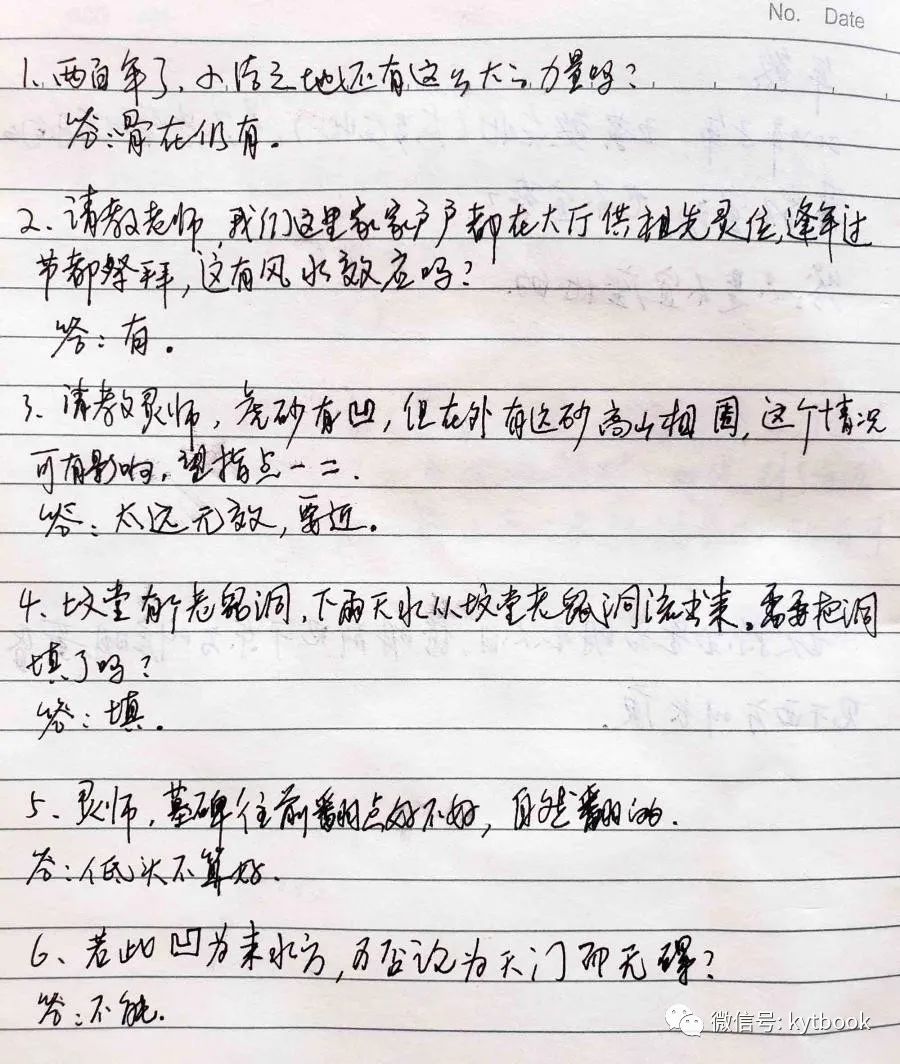 No. Date
1、两百年了,小结之地还有这么大的力量吗?
答:骨在仍有。
2、请教老师,我们这里家家户户都在大厅供祖先灵位,逢年过
节都祭拜,这有风水效应吗?
答:有。
3、请教炅师,虎砂有凹,但在外有远砂高山相围,这个情况
可有影响,望指点一二.
答:太远无效,要近。
4、坟堂有个老鼠洞,下雨天水从坟堂老鼠洞流出来。需要把洞
填了吗?
答:填。
5、炅师,墓碑往前翻点好不好,自然翻的.
答:低头不算好.
6、若此凹为来水方,可否认为天门即无碍?
答:不能.
微信号: kytbook